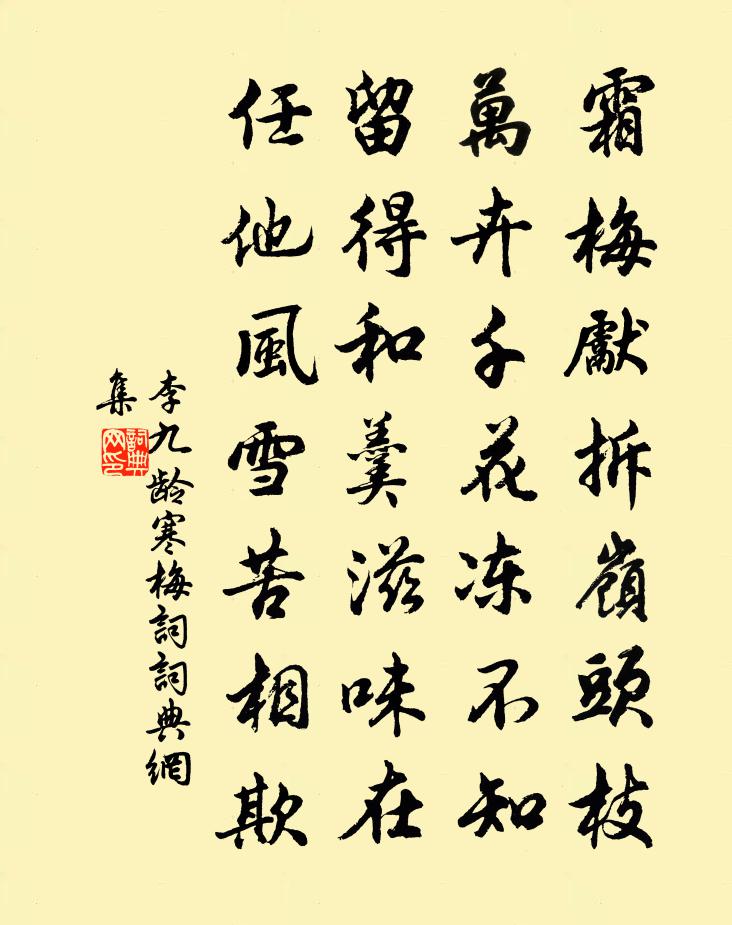 霜梅獻拆嶺頭枝
萬卉千花冻不知
留得和羹滋味在
任他風雪苦相欺
李九龄寒梅詞詞典網
集
詞典
网印